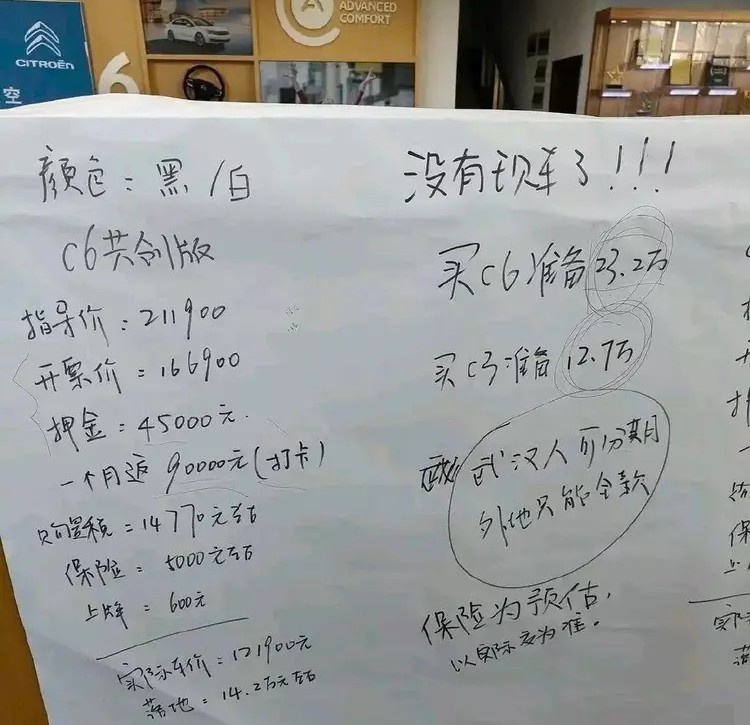 CITROËN
ADVANCED
COMFORT
6
空
颜色：黑/白
C6共创版
指导价：211900
开票价：166900
押金：45000元.
一个月返 90000元(打卡)
购置税=14770元左右
保险=5000元左右
上牌=600元
实际车价：121900元
落地：14.2万元左右
没有现车了!!!
买C6准备23.2万
买C3准备12.7万
武汉人可分期
外地只能全款
保险为预估，
以实际为准。